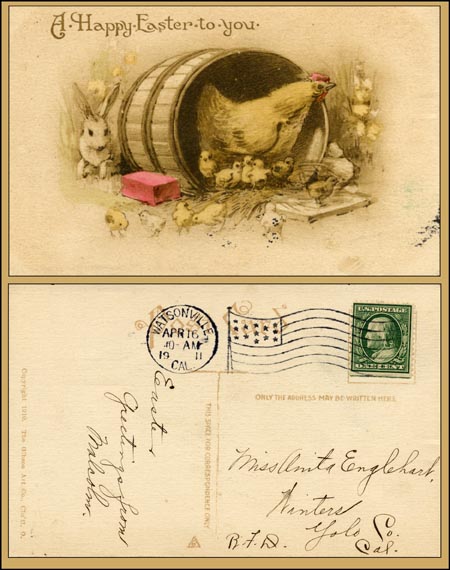 A·Happy·Easter·to·you·
WATSONVILLE
APR 16
10-AM
19 11
CAL.
U.S. POSTAGE
ONE CENT
ONLY THE ADDRESS MAY BE WRITTEN HERE.
THIS SPACE FOR CORRESPONDENCE ONLY
Copyright 1910. The Gibson Art Co., Cin'ti, O.
Easter
Greetings from
Malcolm.
Miss Anita Englehart,
Winters
Yolo Co.
R.F.D. Cal.